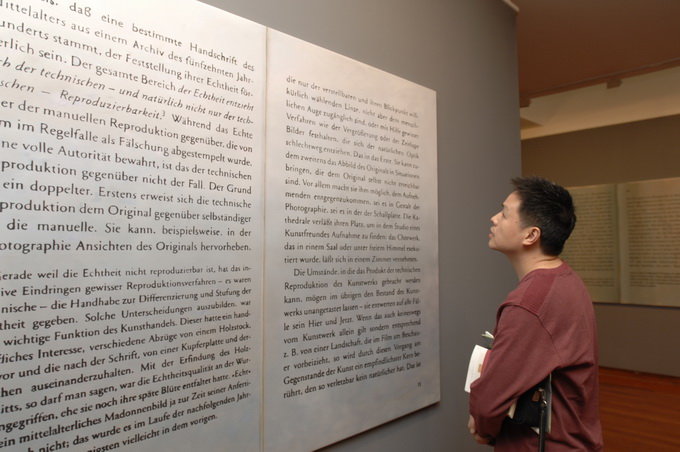 daß eine bestimmte Handschrift des
Mittelalters aus einem Archiv des fünfzehnten Jahr-
hunderts stammt, der Feststellung ihrer Echtheit för-
erlich sein. Der gesamte Bereich der Echtheit entzieht
ch der technischen – und natürlich nicht nur der tech-
schen – Reproduzierbarkeit.³ Während das Echte
er der manuellen Reproduktion gegenüber, die von
m im Regelfalle als Fälschung abgestempelt wurde,
ne volle Autorität bewahrt, ist das der technischen
produktion gegenüber nicht der Fall. Der Grund
ein doppelter. Erstens erweist sich die technische
produktion dem Original gegenüber selbständiger
die manuelle. Sie kann, beispielsweise, in der
otographie Ansichten des Originals hervorheben,
Gerade weil die Echtheit nicht reproduzierbar ist, hat das in-
ive Eindringen gewisser Reproduktionsverfahren – es waren
nische – die Handhabe zur Differenzierung und Stufung der
theit gegeben. Solche Unterscheidungen auszubilden, war
wichtige Funktion des Kunsthandels. Dieser hatte ein hand-
fliches Interesse, verschiedene Abzüge von einem Holzstock,
vor und die nach der Schrift, von einer Kupferplatte und der-
chen auseinanderzuhalten. Mit der Erfindung des Holz-
itts, so darf man sagen, war die Echtheitsqualität an der Wur-
angegriffen, ehe sie noch ihre späte Blüte entfaltet hatte. »Echt«
ein mittelalterliches Madonnenbild ja zur Zeit seiner Anferti-
och nicht; das wurde es im Laufe der nachfolgenden Jahr-
nigsten vielleicht in dem vorigen.
die nur der verstellbaren und ihren Blickpunkt will-
kürlich wählenden Linse, nicht aber dem mensch-
lichen Auge zugänglich sind, oder mit Hilfe gewisser
Verfahren wie der Vergrößerung oder der Zeitlupe
Bilder festhalten, die sich der natürlichen Optik
schlechtweg entziehen. Das ist das Erste. Sie kann zu-
dem zweitens das Abbild des Originals in Situationen
bringen, die dem Original selbst nicht erreichbar
sind. Vor allem macht sie ihm möglich, dem Aufneh-
menden entgegenzukommen, sei es in Gestalt der
Photographie, sei es in der der Schallplatte. Die Ka-
thedrale verläßt ihren Platz, um in dem Studio eines
Kunstfreundes Aufnahme zu finden; das Chorwerk,
das in einem Saal oder unter freiem Himmel exeku-
tiert wurde, läßt sich in einem Zimmer vernehmen.
Die Umstände, in die das Produkt der technischen
Reproduktion des Kunstwerks gebracht werden
kann, mögen im übrigen den Bestand des Kunst-
werks unangetastet lassen – sie entwerten auf alle Fäl-
le sein Hier und Jetzt. Wenn das auch keineswegs
vom Kunstwerk allein gilt sondern entsprechend
z. B. von einer Landschaft, die im Film am Beschau-
er vorbeizieht, so wird durch diesen Vorgang am
Gegenstande der Kunst ein empfindlichster Kern be-
rührt, den so verletzbar kein natürlicher hat. Das ist